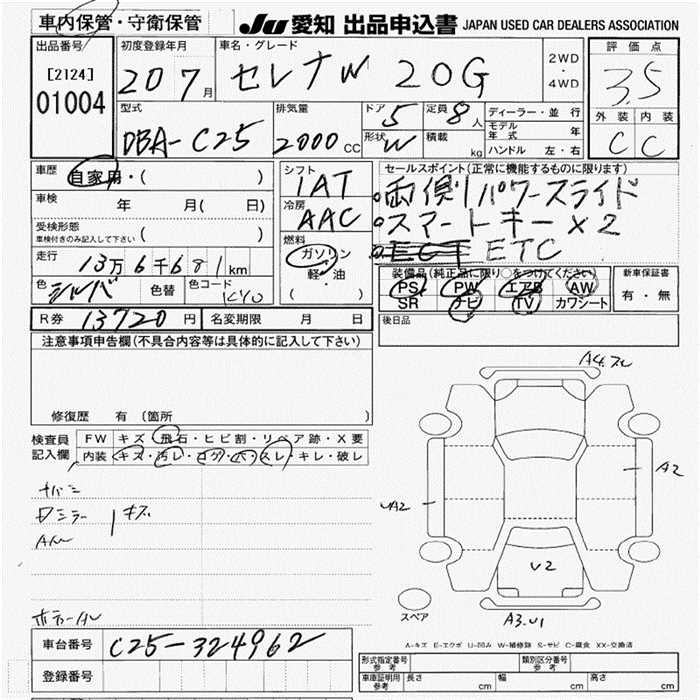 車内保管・守衛保管
JU 愛知 出品申込書 JAPAN USED CAR DEALERS ASSOCIATION
出品番号 [2124] 01004
初度登録年月 20 7月
車名・グレード セレナW 20G
2WD・4WD
評価点 3.5
型式 DBA-C25
排気量 2000 CC
ドア 5 形状 W
定員 8人 積載 kg
ディーラー・並行
モデル年式 年
ハンドル 左・右
外装 内装
C C
車歴 自家用・( )
シフト IAT
セールスポイント(正常に機能するものに限ります)
車検 年 月( 日)
冷房 AAC
両側パワースライド
・スマートキー×2
ETC
受検形態 車検付きのみ記入して下さい ( )
燃料 ガソリン 軽・油 ( )
走行 13万6千681km
色 シルバ 色替 色コード KY0
装備品(純正品に限り○をつけてください)
PS PW エアB AW
SR ナビ TV カワシート
新車保証書 有・無
R券 13720円 名変期限 月 日
後日品
注意事項申告欄(不具合内容等は具体的に記入して下さい)
修復歴 有 (箇所
検査員記入欄
FW キズ・飛石・ヒビ割・リペア跡・X要
内装 キズ・汚レ・コゲ・穴・スレ・キレ・破レ
ナバミ
ミラー キズ
A4.ズレ
A2
A2
U2
A3.U1
スペア
A-キズ E-エクボ U-凹み W-補修跡 S-サビ C-腐食 XX-交換済
車台番号 C25-324962
登録番号
型式指定番号 参考 類別区分番号 参考
車庫証明用 参考 長さ cm 幅 cm 高さ cm